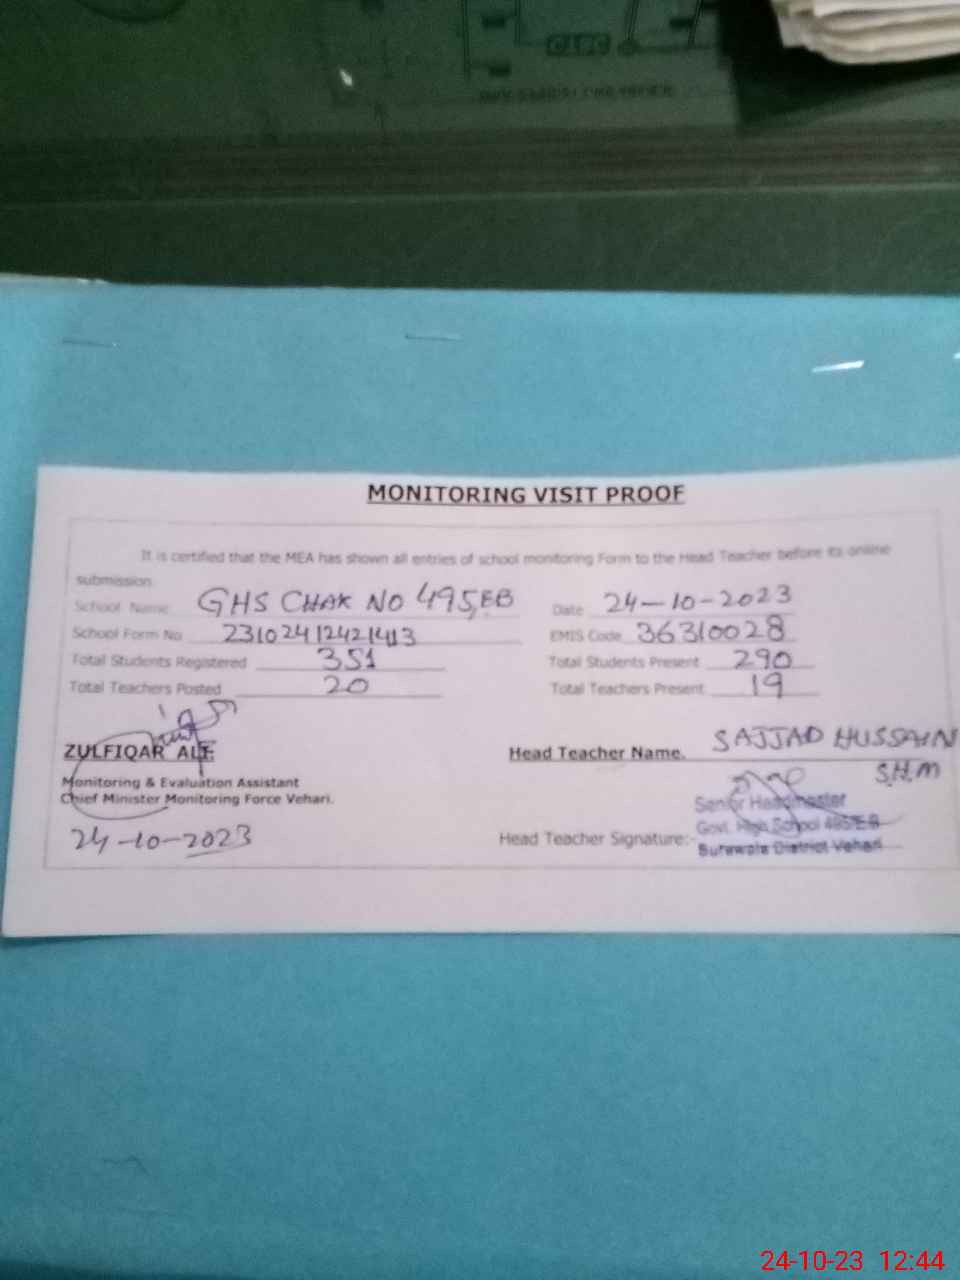 MONITORING VISIT PROOF
It is certified that the MEA has shown all entries of school monitoring Form to the Head Teacher before its online
submission.
School Name GHS CHAK NO 495,EB Date 24-10-2023
School Form No 231024 EMIS Code 36310028
Total Students Registered 351 Total Students Present 290
Total Teachers Posted 20 Total Teachers Present 19
ZULFIQAR ALI Head Teacher Name. SAJJAD HUSSAIN
S.H.M
Monitoring & Evaluation Assistant
Chief Minister Monitoring Force Vehari.
Senior Headmaster
Govt. High School
Head Teacher Signature:- Burewala District Vehari
24-10-2023
24-10-23 12:44